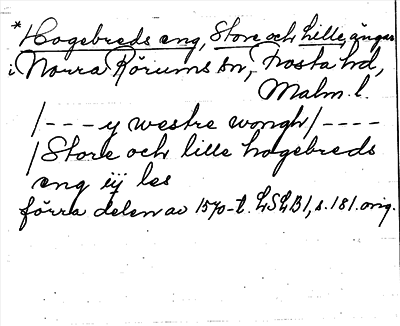 *Hogebreds eng, Store och Lille, ängar
i Norra Rörums sn, Frosta hd,
Malm. l.
/---y westre wongh/----
/Store och lille hogebreds
eng iij les
förra delen av 1570-t. LSLB1, s. 181. orig.